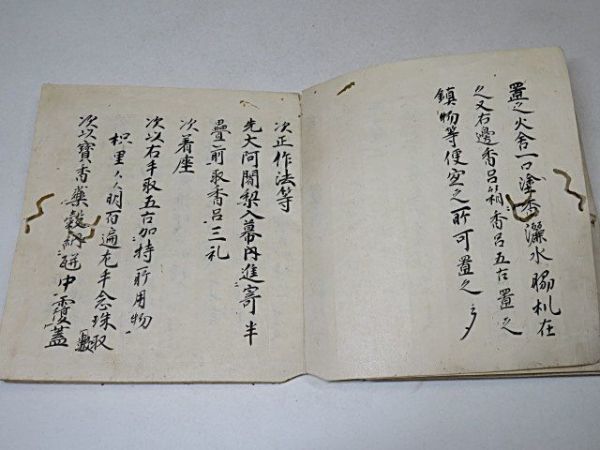 置之火舎一口塗香灑水脇机在
之又右邊香呂箱香呂五古置之
鎮物等便宜之所可置之
次正作法等
先大阿闍梨入幕内進寄半
疊前取香呂三礼
次着座
次以右手取五古加持所用物
枳里〻〻明百遍左手念珠取
数
次以寶香藥穀納瓶中覆蓋